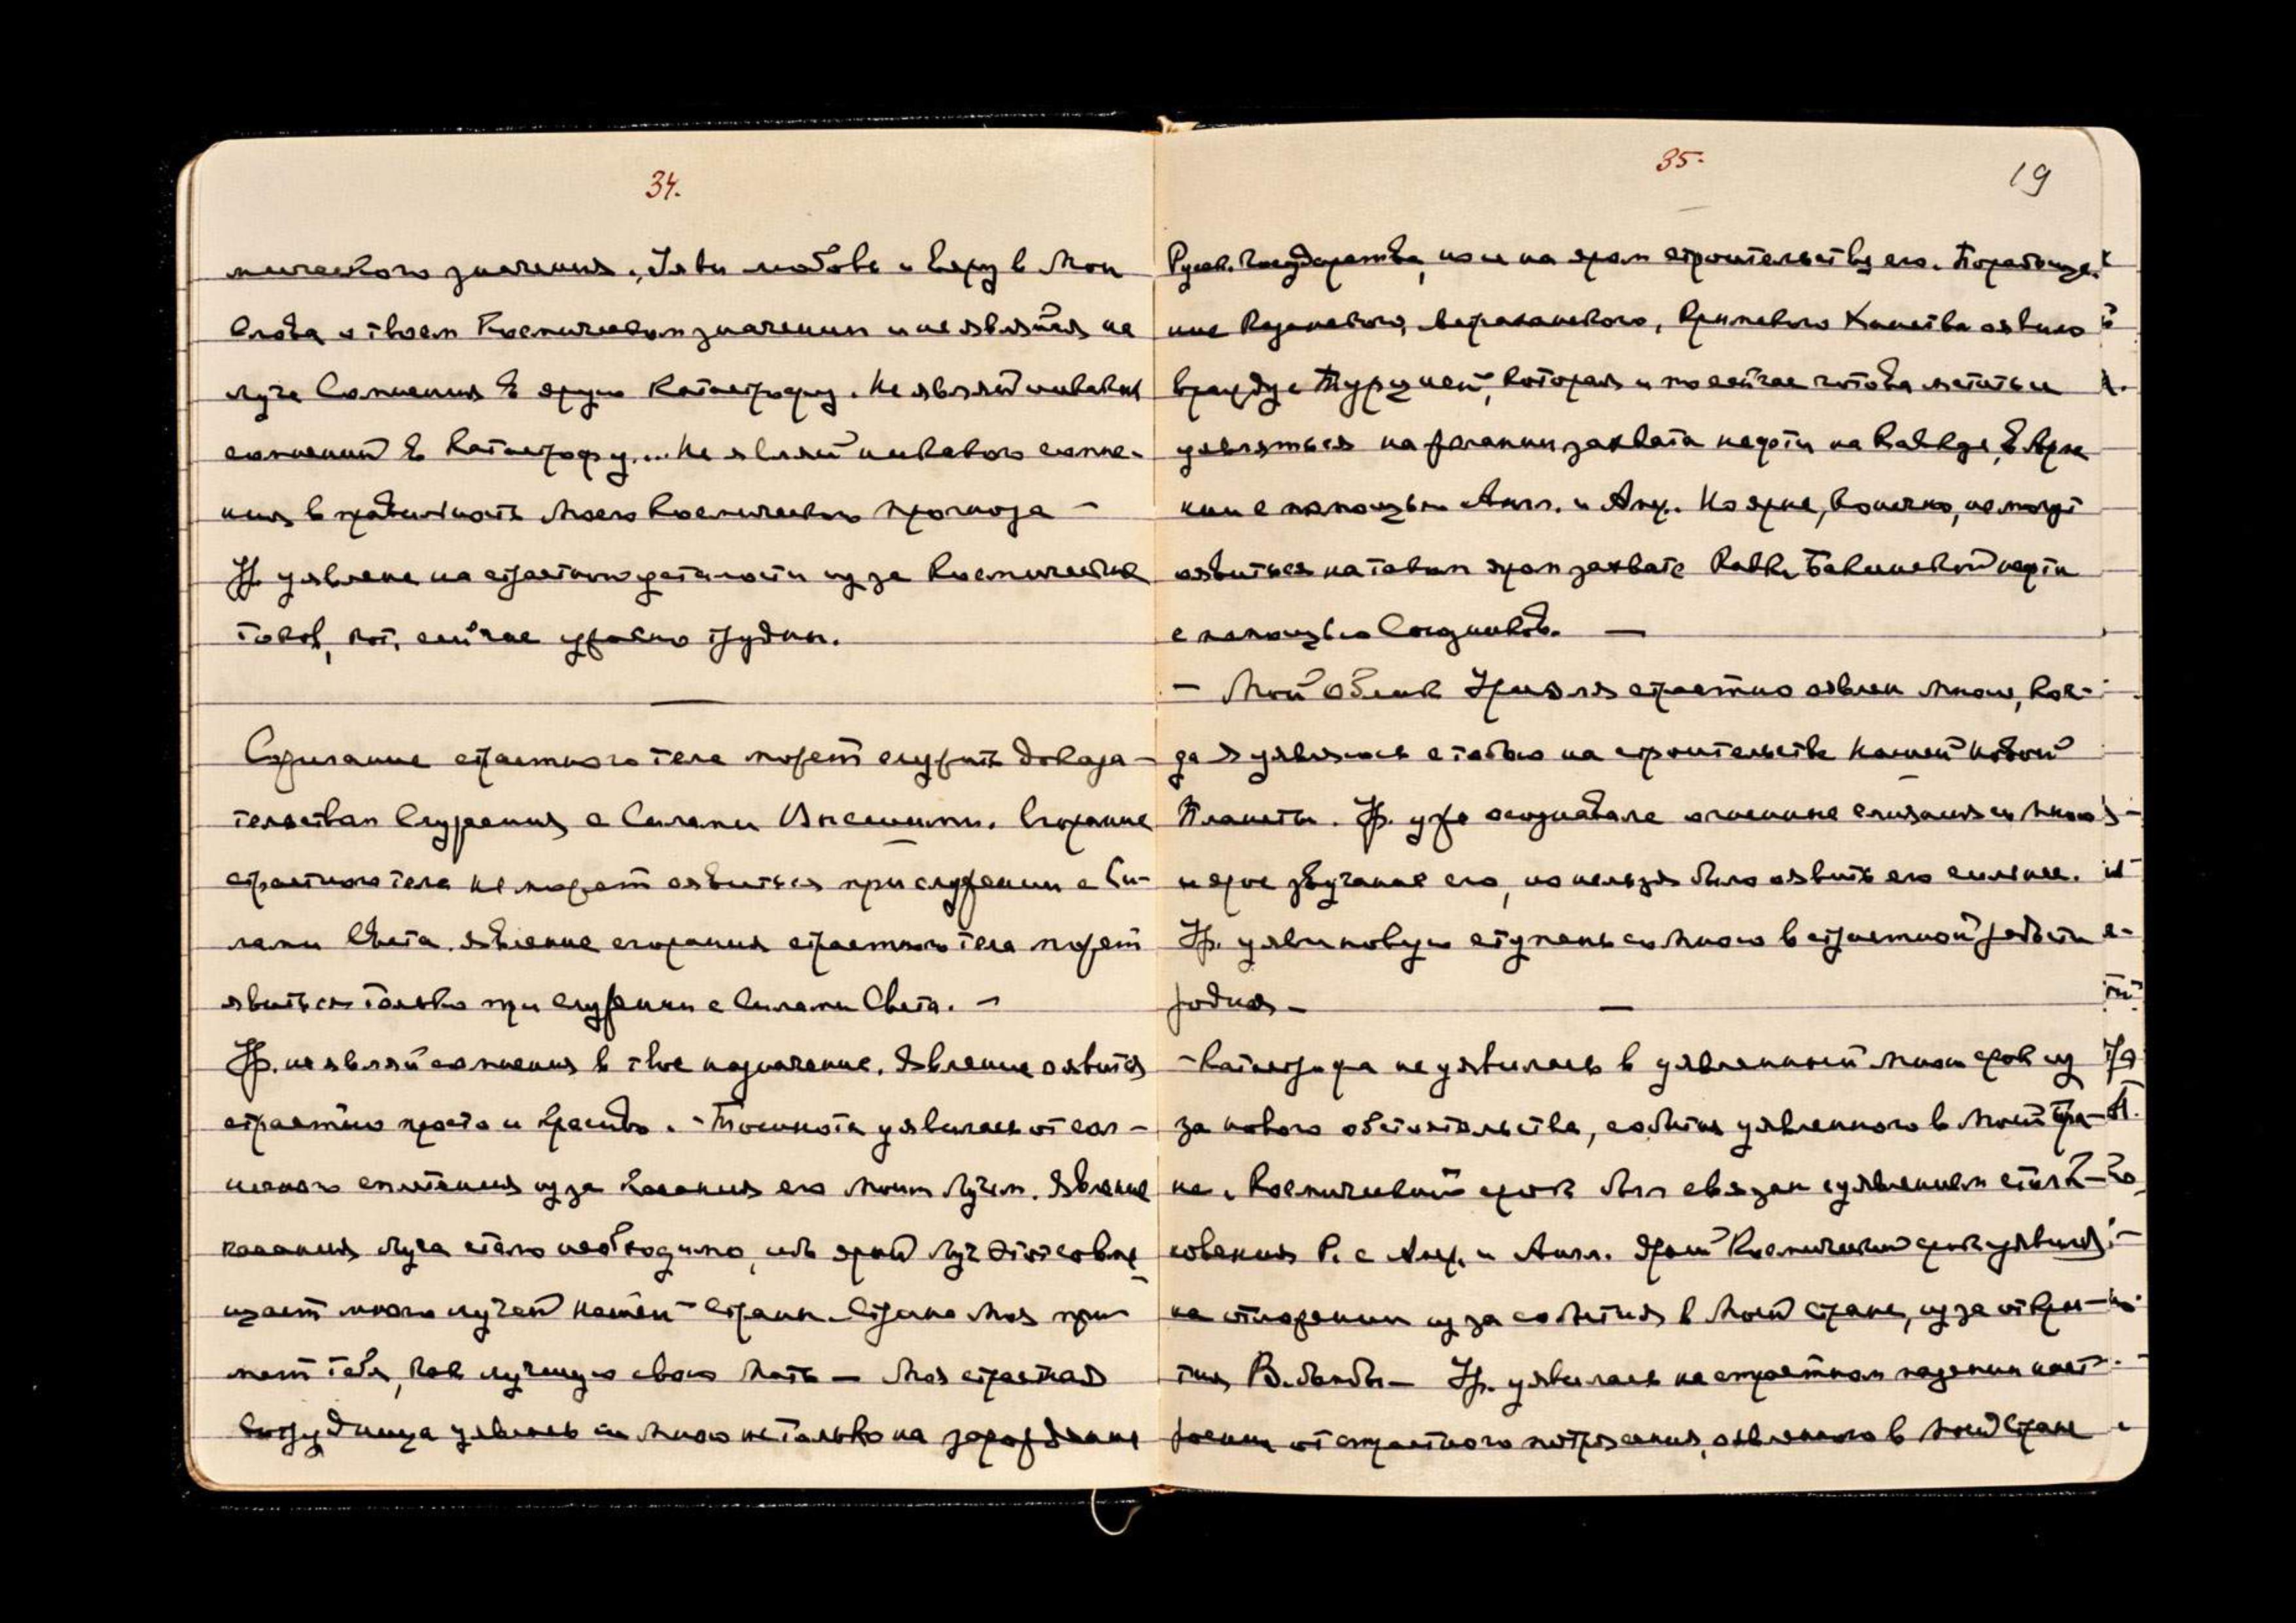 34.
мического значения. Яви любовь и веру в Мои
Слова о твоем Космическом значении и не являйся на
луче Сомнения в ярую Катастрофу. Не являй никаких
сомнений в Катастрофу... Не являй никакого сомне-
ния в правильность Моего Космического прогноза –
Ур. уявлена на страстной усталости из за Космических
токов, кот. сейчас ужасно трудны.
Сжигание страстного тела может служить доказа-
тельством Служения с Силами Высшими. Сгорание
страстного тела не может явиться при служении с Си-
лами Света явление сгорания страстного тела может
явиться только при служении с Силами Света. –
Ур. не являй сомнения в твое назначение. Явление оявится
страстно просто и красиво. – Тошнота уявилась от сол-
нечного сплетения из за касания его Моим Лучом. Явление
касания Луча стало необходимо, ибо ярый Луч
много лучей нашей Страны. Страна Моя при-
мет тебя, как лучшую свою Мать – Моя страстная
Сотрудница уявись со Мною не только на
35.
19
Русск. Государства, но и на яром строительстве его. Порабоще-
ние Казанского, Астраханского, Крымского Ханства оявило
вражду с Турцией, которая и по сейчас готова мстить и
уявляться на желании захвата нефти на Кавказе, в Арме
нии с помощью Англ. и Амер. Но ярые, конечно, не могут
оявиться на таком яром захвате Кавк. Бакинской нефти
с помощью Союзников. –
– Мой Облик Урияля страстно оявлен Мною, ког-
да Я уявляюсь с тобою на строительстве Нашей Новой
Планеты. Ур. уже осознавала огненное слияние со Мною
и ярое звучание его, но нельзя было оявить его сильнее.
Ур. уяви новую ступень со Мною в страстной радости
родная –
– Катастрофа не уявилась в уявленный Мною срок из
за нового обстоятельства, события уявленного в Моей Стра-
не. Космический срок был связан с уявлением столк-
новения Р. с Амер. и Англ. Ярый Космический срок уявился
на отложении из за события в Моей Стране, из за откры-
тия В. бомбы – Ур. уявилась на страстном падении наст
роения от страстного потрясения, оявленного в Моей Стране